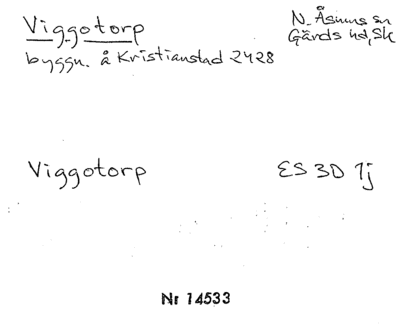 Viggotorp
N. Åsums sn
Gärds hd, Sk
byggn. å Kristianstad 2428
Viggotorp ES 3D 1j
Nr 14533